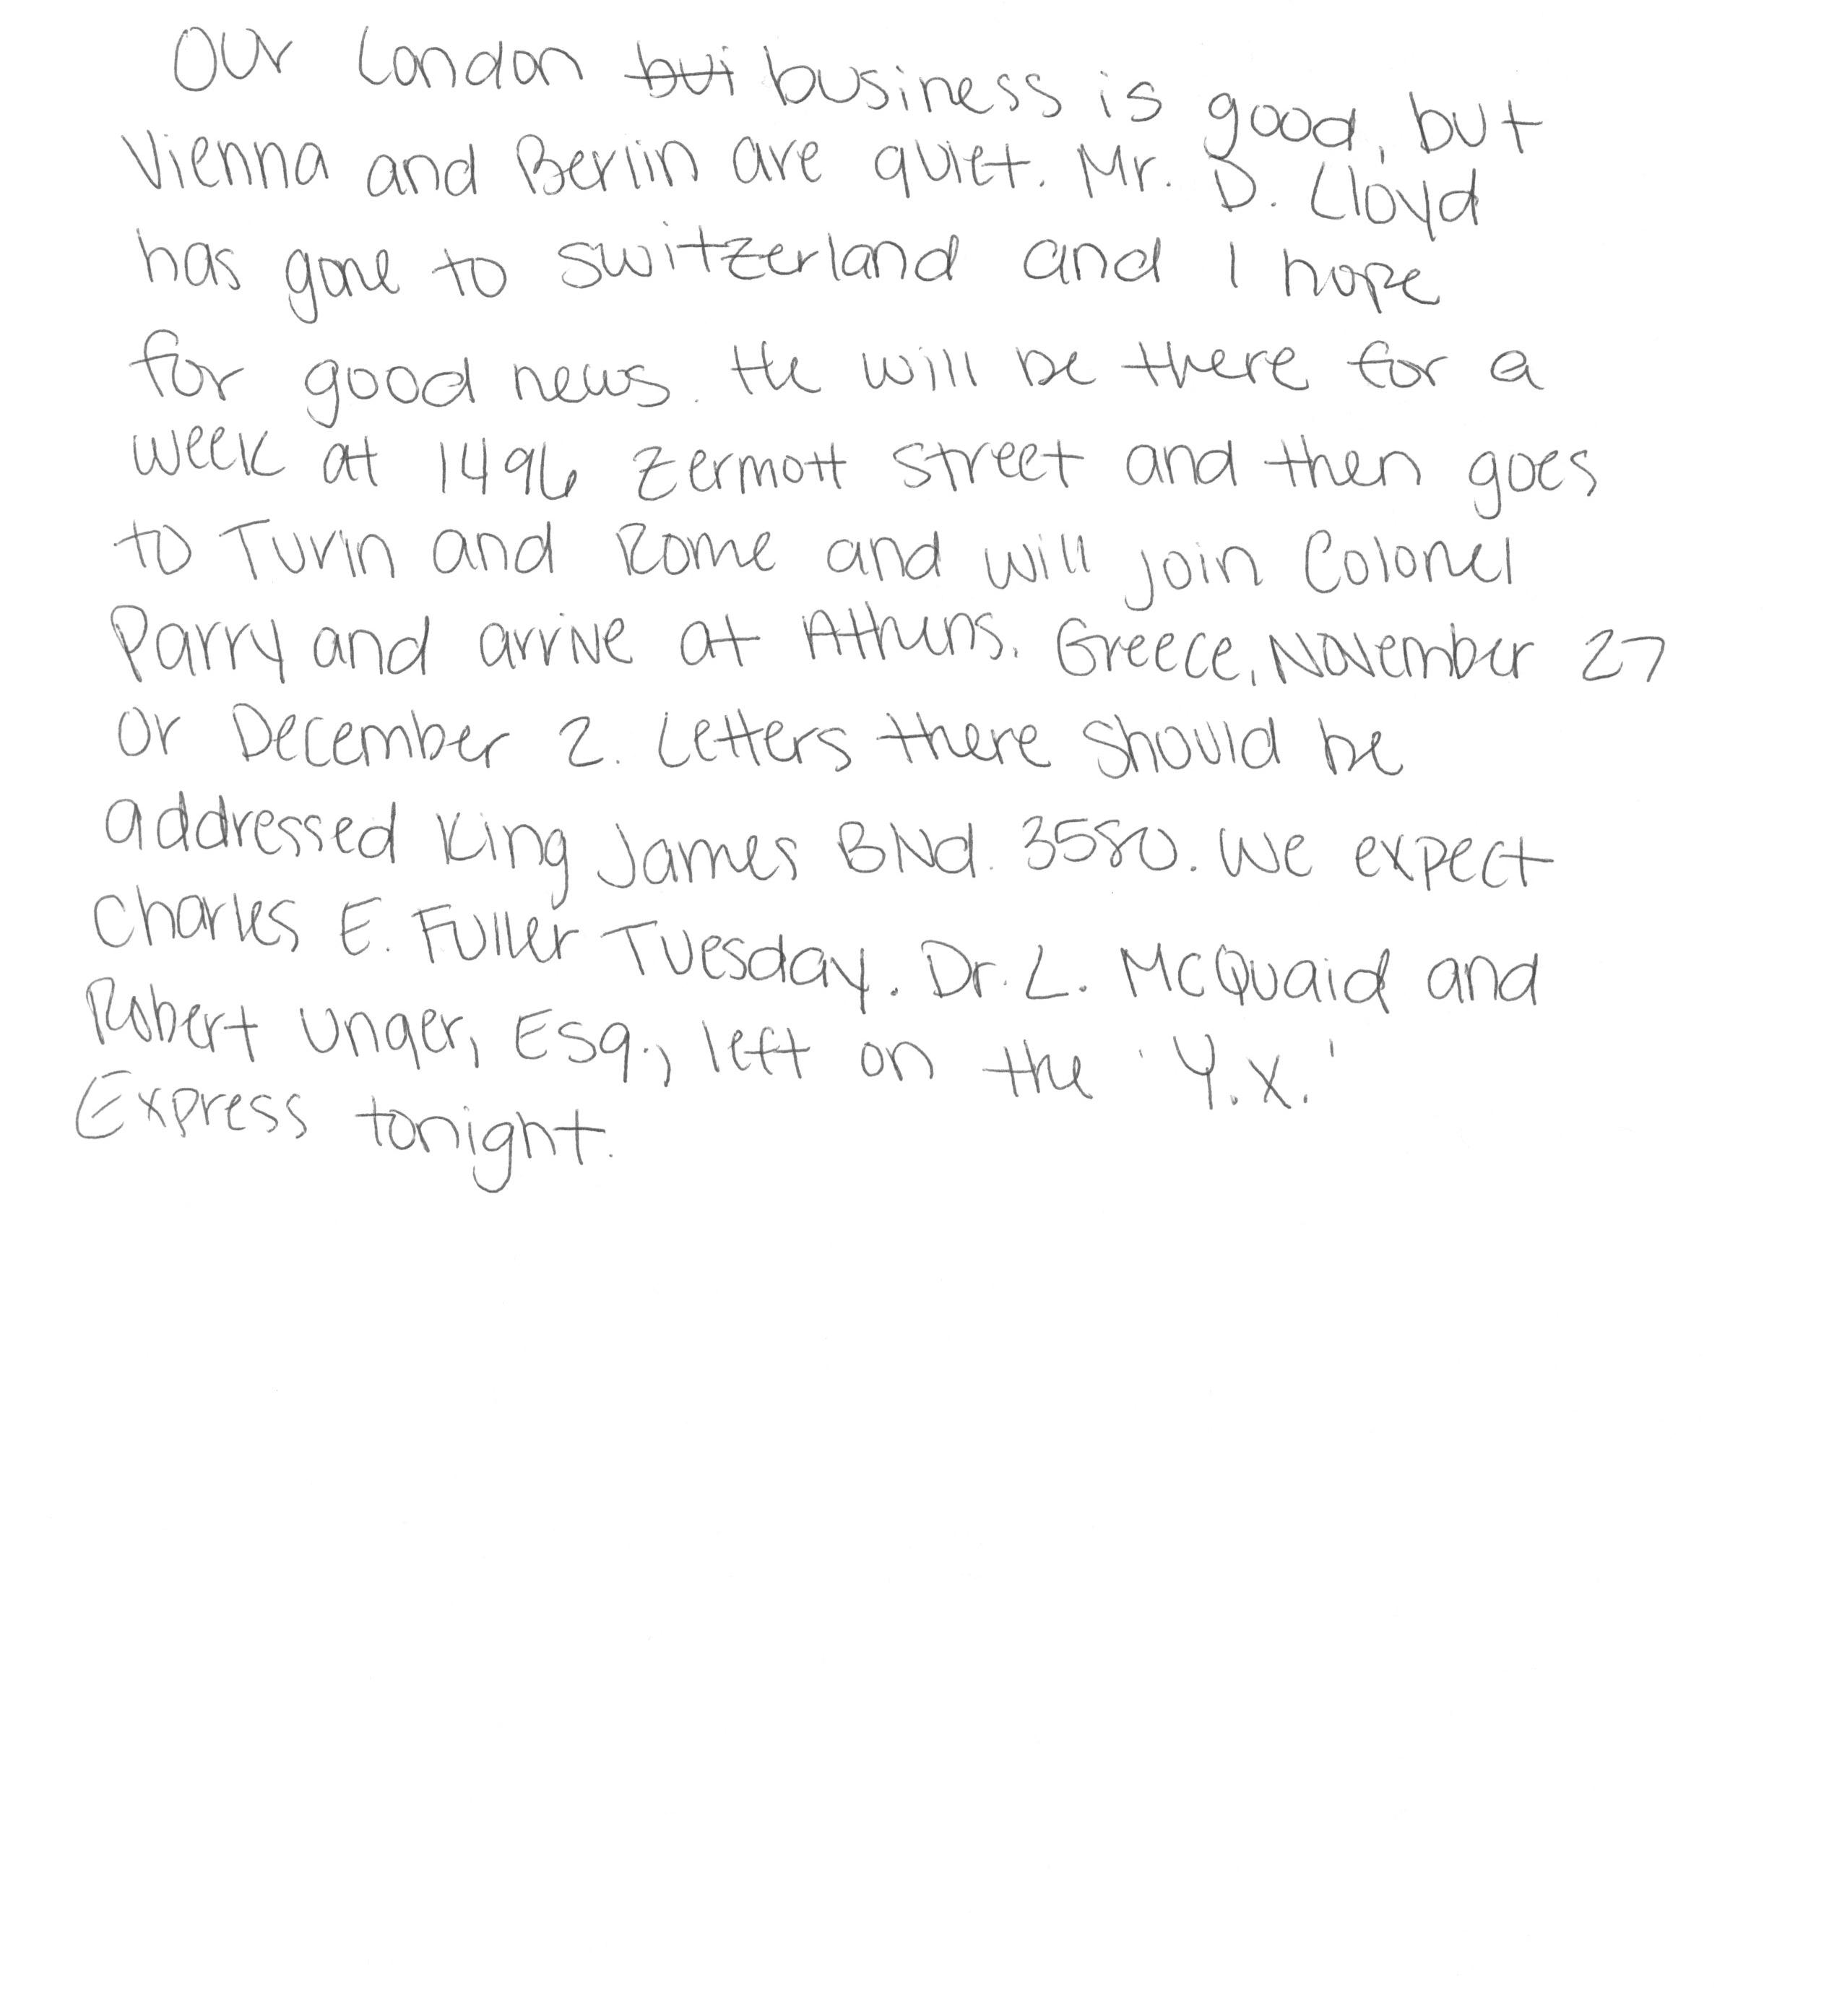 Our London bui business is good, but
Vienna and Berlin are quiet. Mr. D. Lloyd
has gone to Switzerland and I hope
for good news. He will be there for a
week at 1496 Zermott Street and then goes
to Turin and Rome and will join Colonel
Parry and arrive at Athens, Greece, November 27
or December 2. Letters there should be
addressed King James Blvd. 3580. We expect
Charles E. Fuller Tuesday. Dr. L. McQuaid and
Robert Unger, Esq., left on the 'Y.X.'
Express tonight.